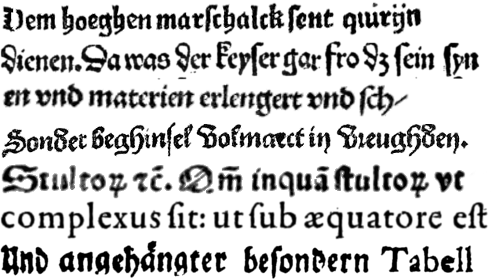 Dem hoeghen marſchalck ſent quirijn
dienen. Da was der keyſer gar fro dz ſein ſyn
en vnd materien erlengert vnd ſch⸗
Sonder beghinſel Volmaect in Vreughden.
Stultoꝝ ⁊c̄. Om̄ inquā ſtultoꝝ vt
complexus ſit: ut ſub æquatore eſt
Und angehaͤngter beſondern Tabell